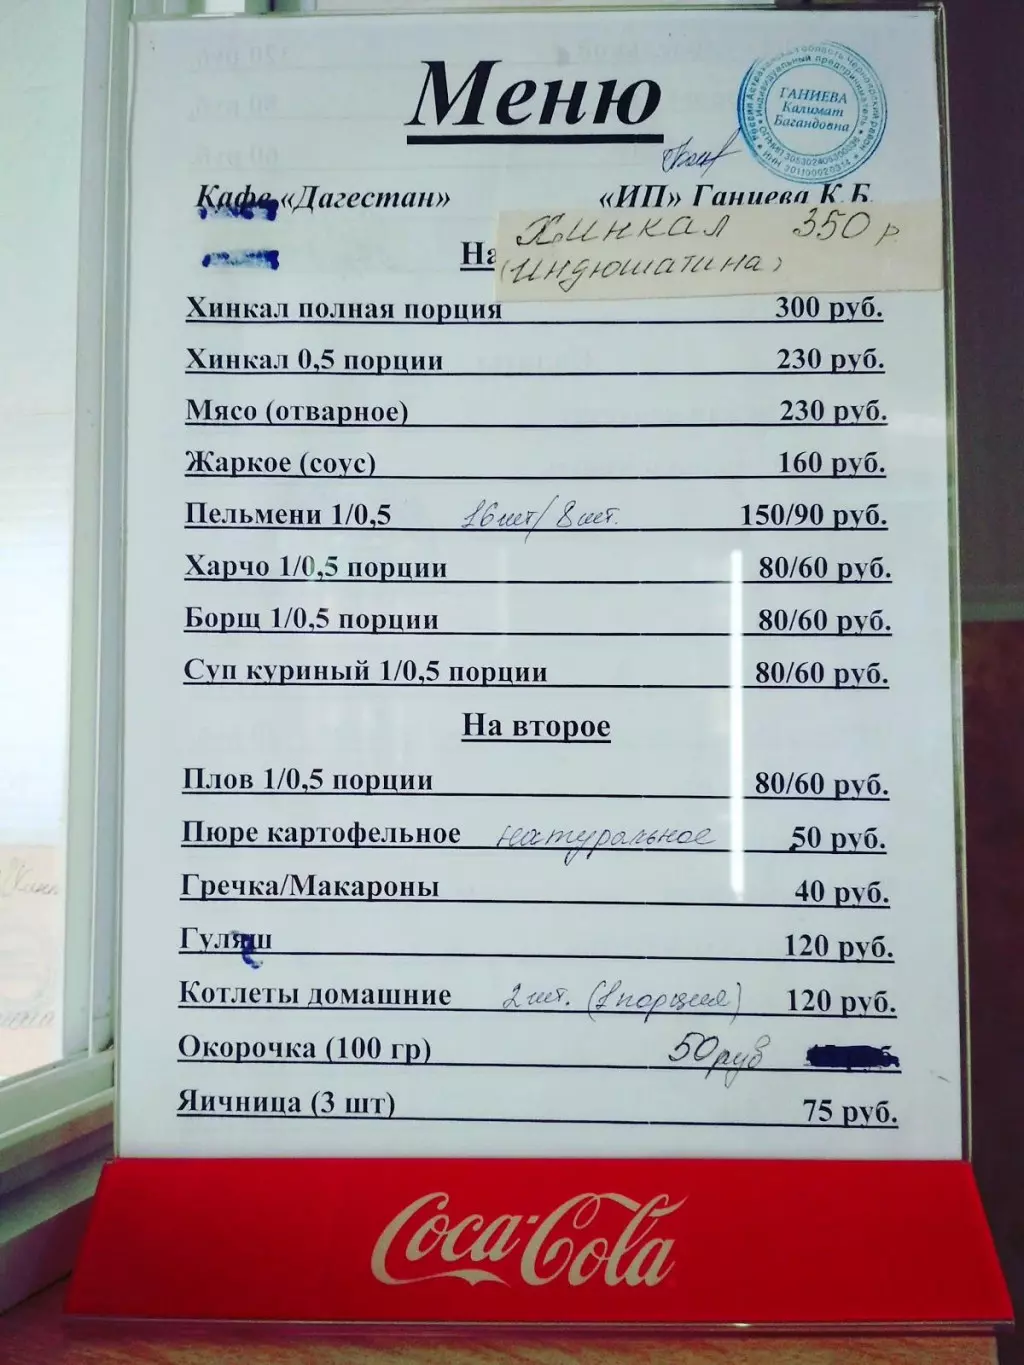 Меню
Россия Астраханская область Черноярский район
Индивидуальный предприниматель
ГАНИЕВА
Калимат
Багандовна
Кафе «Дагестан» «ИП» Ганиева К.Б.
Хинкал 350 р
(индюшатина)
На
Хинкал полная порция 300 руб.
Хинкал 0,5 порции 230 руб.
Мясо (отварное) 230 руб.
Жаркое (соус) 160 руб.
Пельмени 1/0,5 16шт/8шт. 150/90 руб.
Харчо 1/0,5 порции 80/60 руб.
Борщ 1/0,5 порции 80/60 руб.
Суп куриный 1/0,5 порции 80/60 руб.
На второе
Плов 1/0,5 порции 80/60 руб.
Пюре картофельное натуральное 50 руб.
Гречка/Макароны 40 руб.
Гуляш 120 руб.
Котлеты домашние 2шт. (1порция) 120 руб.
Окорочка (100 гр) 50руб
Яичница (3 шт) 75 руб.
Coca-Cola